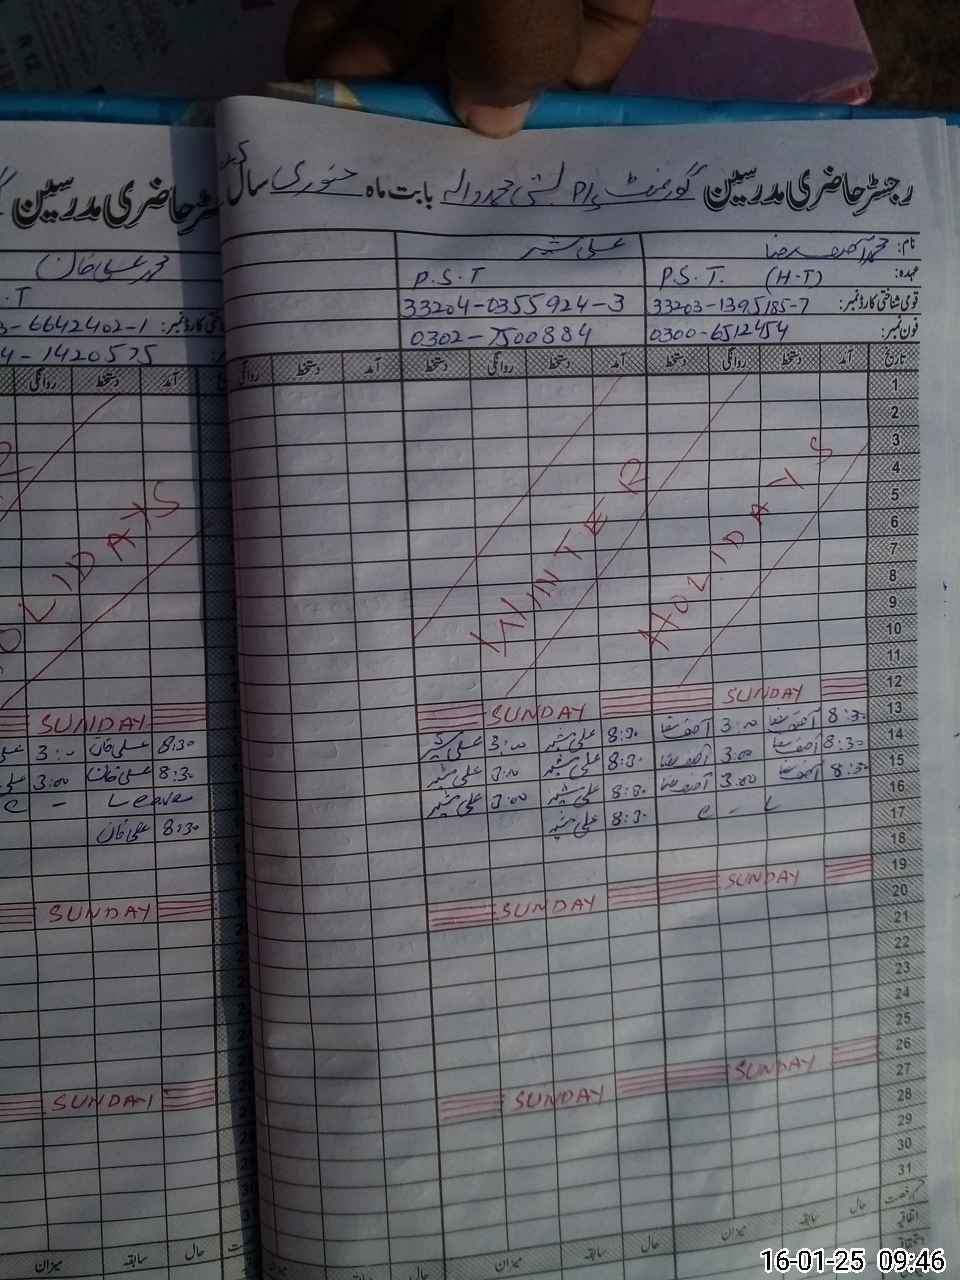 رجسٹر حاضری مدرسین گورنمنٹ بابت ماہ جنوری سال
نام: محمد آصف رضا علی شیر
عہدہ: P.S.T. (H-T) P.S.T
قومی شناختی کارڈ نمبر: 33203-1395185-7 33204-0355924-3
فون نمبر: 0300-6512454 0302-7500884
تاریخ آمد دستخط روانگی دستخط آمد دستخط روانگی دستخط آمد دستخط روانگی
1
2
3
4
5
6
7
8
9
10
11
WINTER
HOLIDAYS
12 SUNDAY SUNDAY
13 8:30 آصف رضا 3:00 آصف رضا 8:30 علی شیر 3:00 علی شیر
14 8:30 آصف رضا 3:00 آصف رضا 8:30 علی شیر 3:00 علی شیر
15 8:30 آصف رضا 3:00 آصف رضا 8:30 علی شیر 3:00 علی شیر
16 C - L 8:30 علی شیر
17
18
19 SUNDAY SUNDAY
20
21
22
23
24
25
26 SUNDAY SUNDAY
27
28
29
30
31
حال سابقہ میزان حال سابقہ میزان
رجسٹر حاضری مدرسین
محمد علی خان
.T
3-6642402-1
4-1420575
دستخط روانگی
OLIDAYS
SUNDAY
8:30 علی خان 3:00
8:30 علی خان 3:00
Leave - C
8:30 علی خان
SUNDAY
SUNDAY
حال سابقہ میزان
16-01-25 09:46